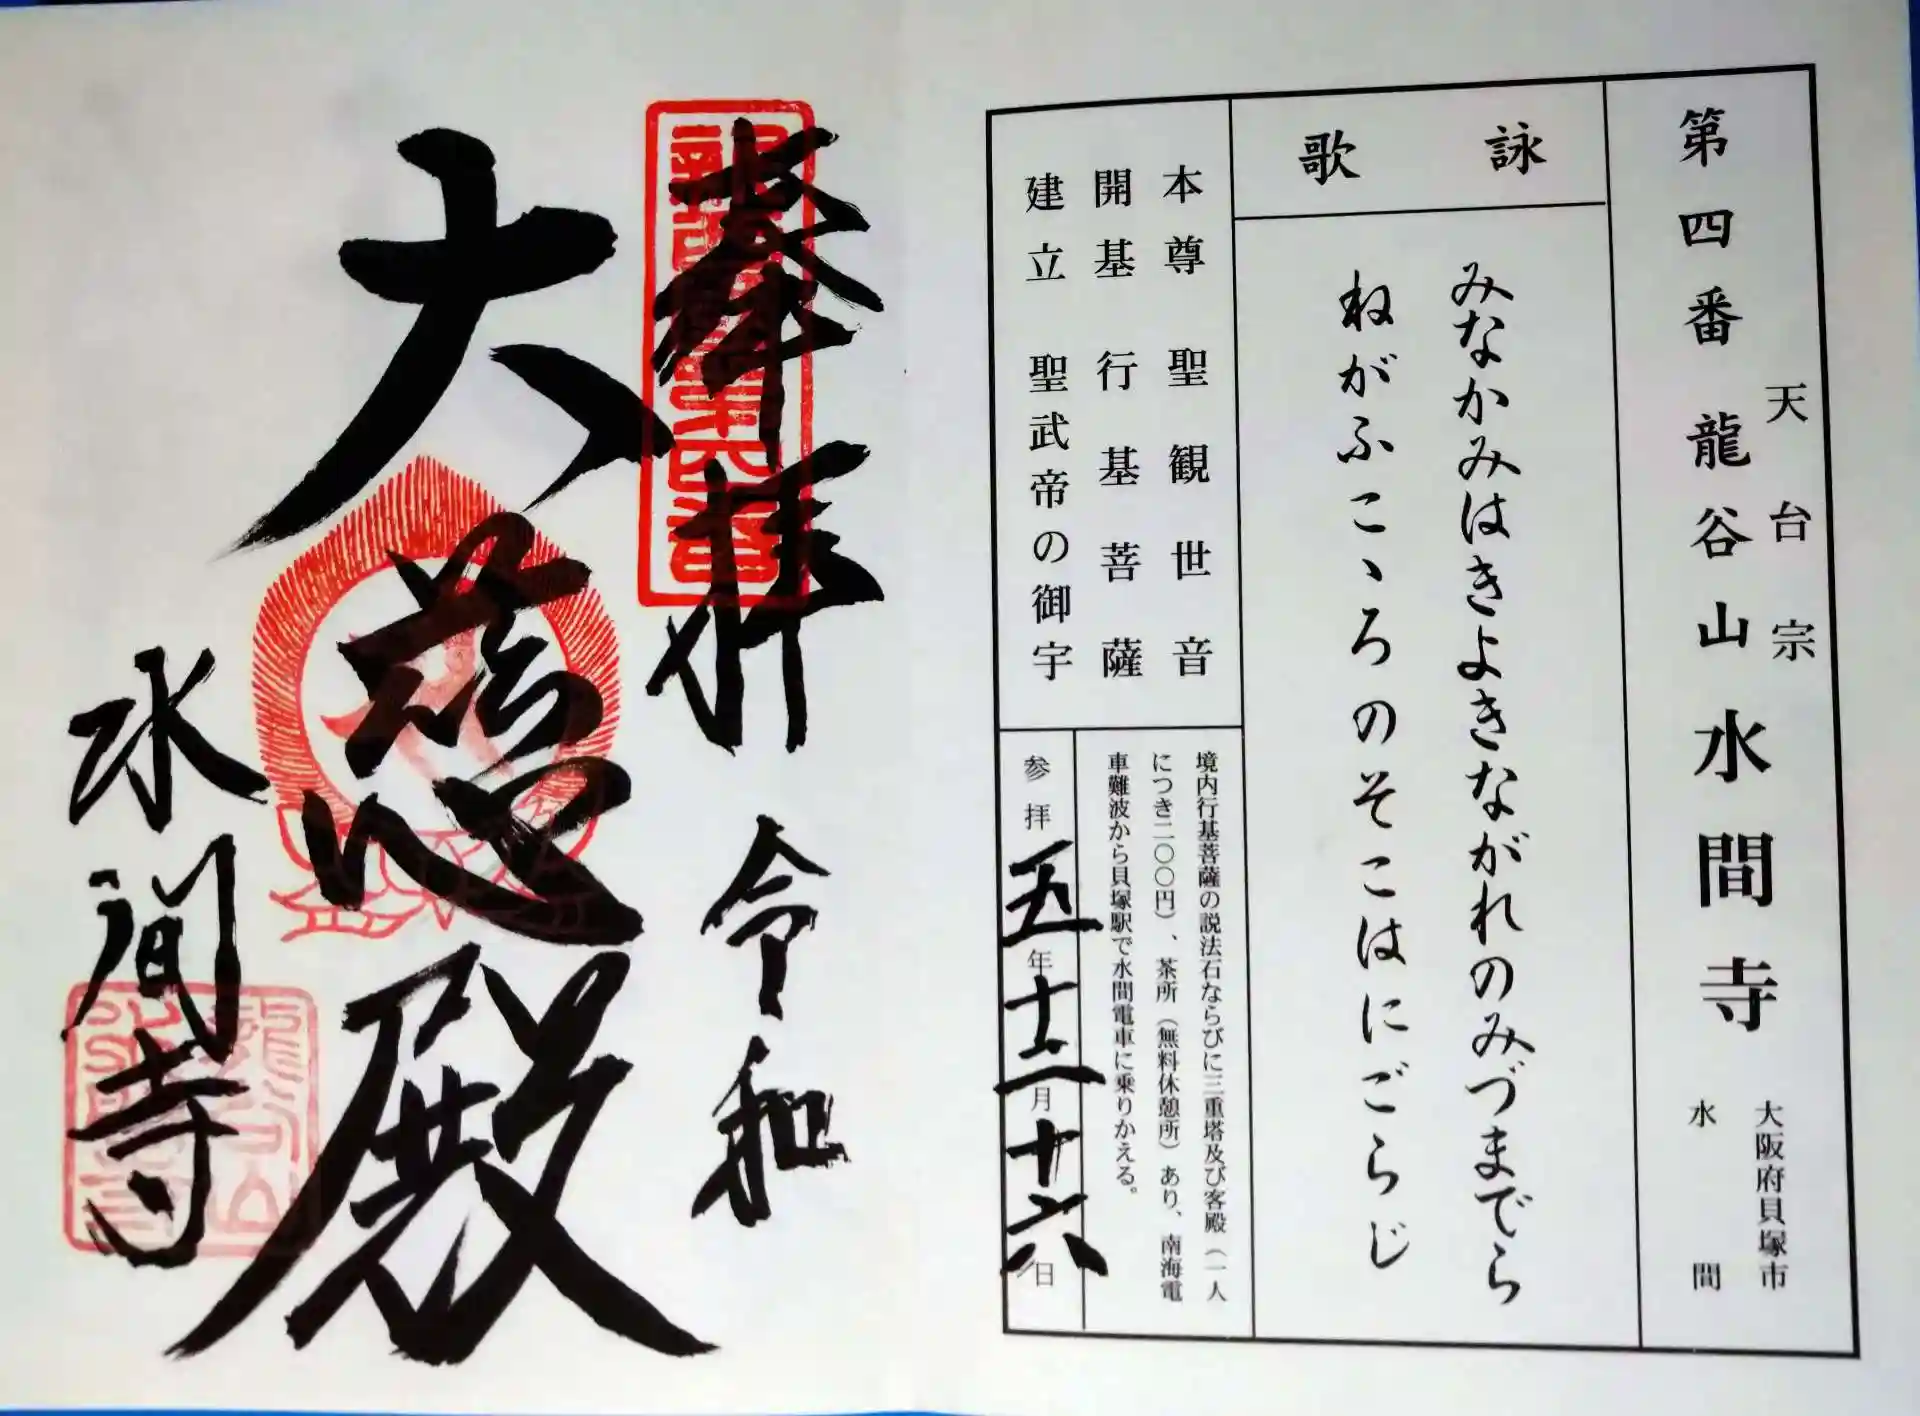 第四番 龍谷山 水間寺
天台宗
大阪府貝塚市
水間
詠歌
みなかみはきよきながれのみづまでら
ねがふこゝろのそこはにごらじ
本尊 聖観世音
開基 行基菩薩
建立 聖武帝の御宇
境内行基菩薩の説法石ならびに三重塔及び客殿（一人
につき二〇〇円）、茶所（無料休憩所）あり、南海電
車難波から貝塚駅で水間電車に乗りかえる。
参拝 五年十二月十六日
奉拝 令和
大慈殿
水間寺